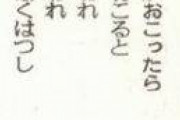 おこったら
ごると
れ
れ
くはつし